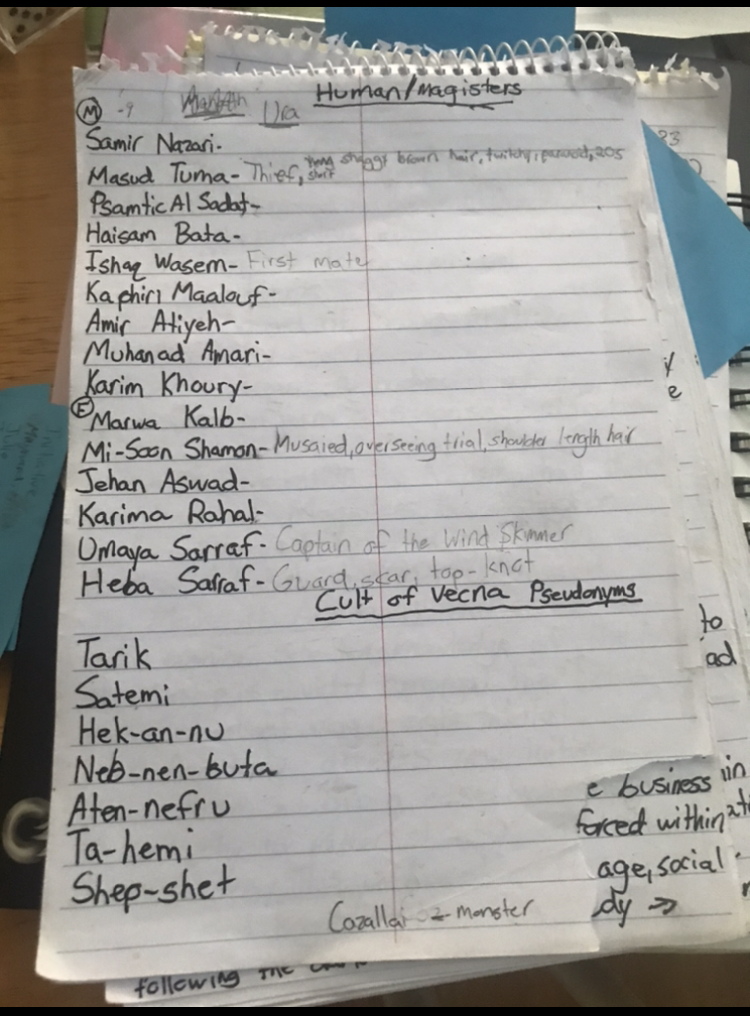 Human/Magisters
M -9 Ura
Samir Nazari-
Masud Tuma- Thief, shaggy brown hair, twitchy, 20s
Psamtic Al Sadat-
Haisam Bata-
Ishaq Wasem- First mate
Kaphiri Maalouf-
Amir Atiyeh-
Muhanad Amari-
Karim Khoury-
F
Marwa Kalb-
Mi-Soon Shaman- Musaied, overseeing trial, shoulder length hair
Jehan Aswad-
Karima Rahal-
Umaya Sarraf- Captain of the Wind Skimmer
Heba Sarraf- Guard, scar, top-knot
Cult of Vecna Pseudonyms
Tarik
Satemi
Hek-an-nu
Neb-nen-buta
Aten-nefru
Ta-hemi
Shep-shet
monster
23
y
e
to
ad
e business in
forced within
age, social
dy →
following the